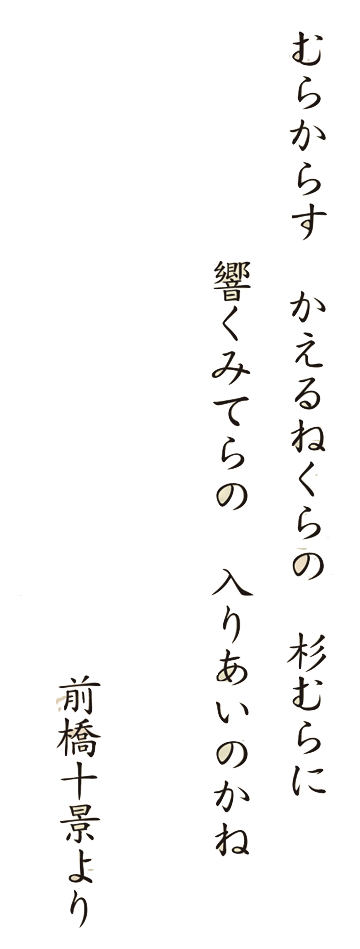 むらからす　かえるねくらの　杉むらに
響くみてらの　入りあいのかね
前橋十景より